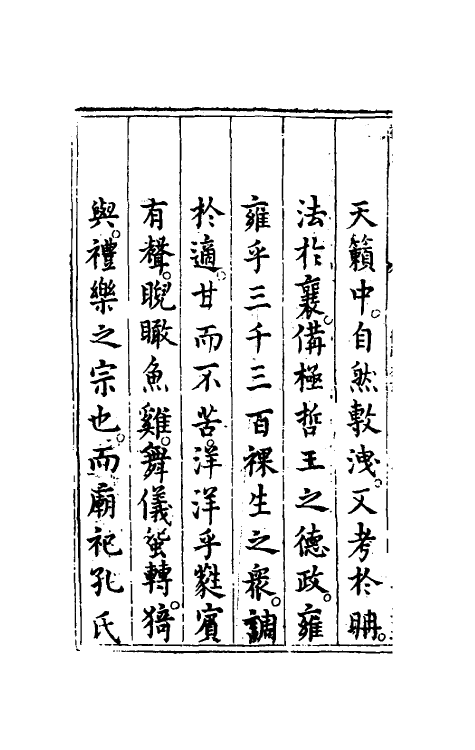 天籟中。自然敷洩。又考於耼。
法於襄。備極哲王之德政。雍
雍乎三千三百祼生之衆。調
於適。甘而不苦。洋洋乎蕤賓
有聲。睨瞰魚雞。舞儀蛍轉。猗
與。禮樂之宗也。而廟祀孔氏